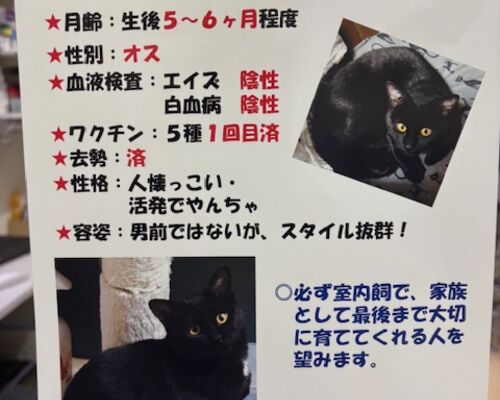 ★月齢：生後５～６ヶ月程度
★性別：オス
★血液検査：エイズ　陰性
白血病　陰性
★ワクチン：５種１回目済
★去勢：済
★性格：人懐っこい・
活発でやんちゃ
★容姿：男前ではないが、スタイル抜群！
○必ず室内飼で、家族
として最後まで大切
に育ててくれる人を
望みます。